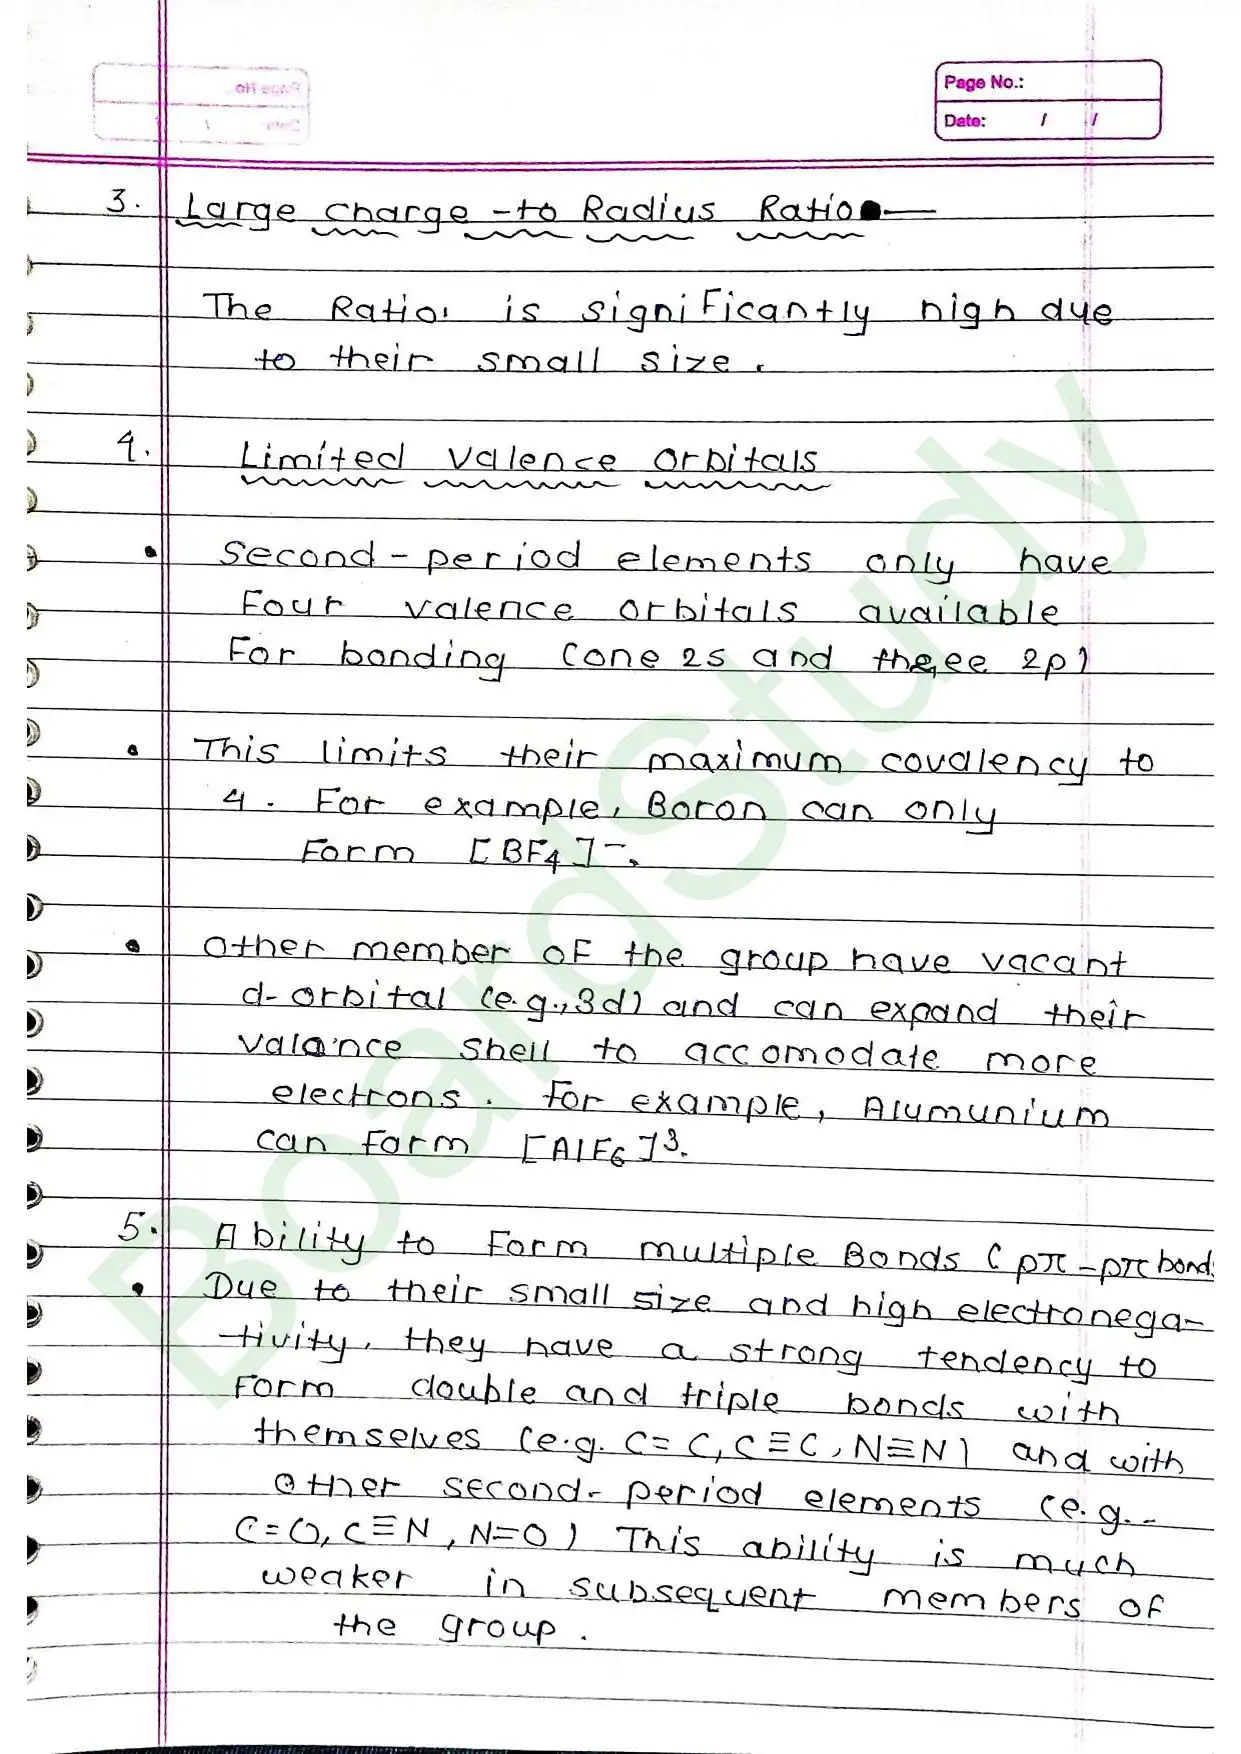 Page No.:
Date: / /
3. Large charge-to Radius Ratio —
The Ratio is significantly high due
to their small size.
4. Limited valence orbitals
• Second-period elements only have
Four valence orbitals available
For bonding (one 2s and three 2p)
• This limits their maximum covalency to
4. For example, Boron can only
Form [BF₄]⁻.
• Other member of the group have vacant
d-orbital (e.g., 3d) and can expand their
valance shell to accomodate more
electrons. For example, Alumunium
can form [AlF₆]³.
5. Ability to Form multiple Bonds (pπ-pπ bond
• Due to their small size and high electronega-
-tivity, they have a strong tendency to
Form double and triple bonds with
themselves (e.g. C=C, C≡C, N≡N) and with
other second-period elements (e.g..
C=O, C≡N, N=O) This ability is much
weaker in subsequent members of
the group.
BoardStudy